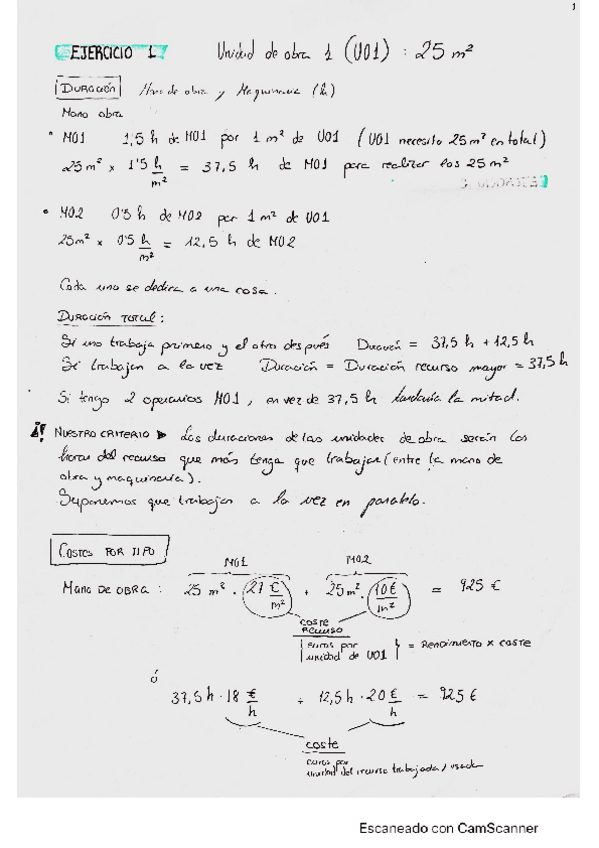 1
EJERCICIO 1 Unidad de obra 1 (U01) : 25 m²
DURACIÓN Mano de obra y Maquinaria (h)
Mano obra
• MO1 1,5 h de MO1 por 1 m² de U01 (U01 necesita 25 m² en total)
25 m² x 1'5 h/m² = 37,5 h de MO1 para realizar los 25 m²
• MO2 0'5 h de MO2 por 1 m² de U01
25m² x 0'5 h/m² = 12,5 h de MO2
Cada uno se dedica a una cosa.
DURACIÓN TOTAL:
Si uno trabaja primero y el otro después Duración = 37,5 h + 12,5 h
Si trabajan a la vez Duración = Duración recurso mayor = 37,5 h
Si tengo 2 operarios MO1, en vez de 37,5 h tardaría la mitad.
NUESTRO CRITERIO ► Las duraciones de las unidades de obra serán las
horas del recurso que más tenga que trabajar (entre la mano de
obra y maquinaria).
Suponemos que trabajan a la vez en paralelo.
COSTES POR TIPO
MO1 MO2
MANO DE OBRA : 25 m² · 27 €/m² + 25 m² · 10 €/m² = 925 €
COSTE
RECURSO
euros por
unidad de U01 = RENDIMIENTO x COSTE
ó
37,5 h · 18 €/h + 12,5 h · 20 €/h = 925 €
COSTE
euros por
unidad del recurso trabajada / usada
Escaneado con CamScanner